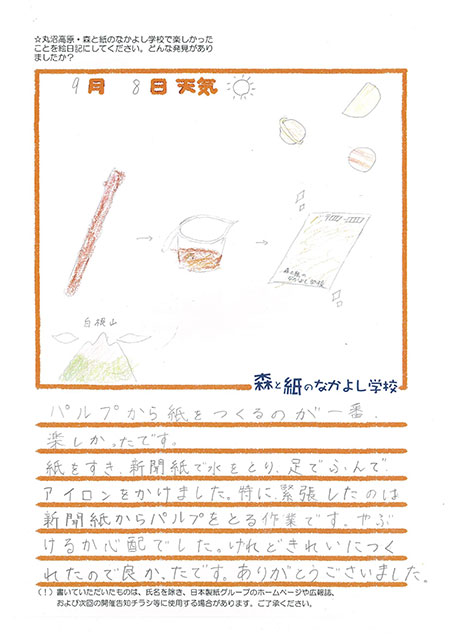 ☆丸沼高原・森と紙のなかよし学校で楽しかった
ことを絵日記にしてください。どんな発見があり
ましたか？
9月 8日 天気
白根山
森と紙の
なかよし学校
森と紙のなかよし学校
パルプから紙をつくるのが一番、
楽しかったです。
紙をすき、新聞紙で水をとり、足でふんで、
アイロンをかけました。特に、緊張したのは
新聞紙からパルプをとる作業です。やぶ
けるか心配でした。けれどきれいにつく
れたので良かったです。ありがとうございました。
（！）書いていただいたものは、氏名を除き、日本製紙グループのホームページや広報誌、
および次回の開催告知チラシ等に使用する場合があります。ご了承ください。